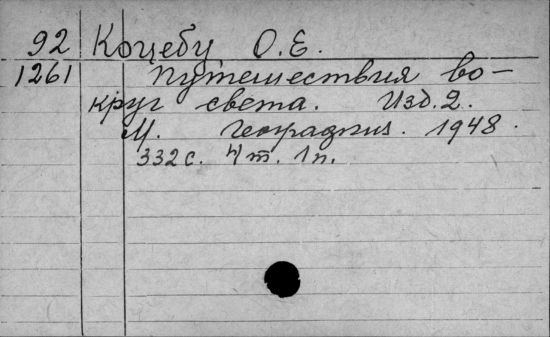 92 Коцебу О.Е.
1261 Путешествия во-
круг света. Изд. 2.
М. География. 1948.
332 с. Чт. 1 п.